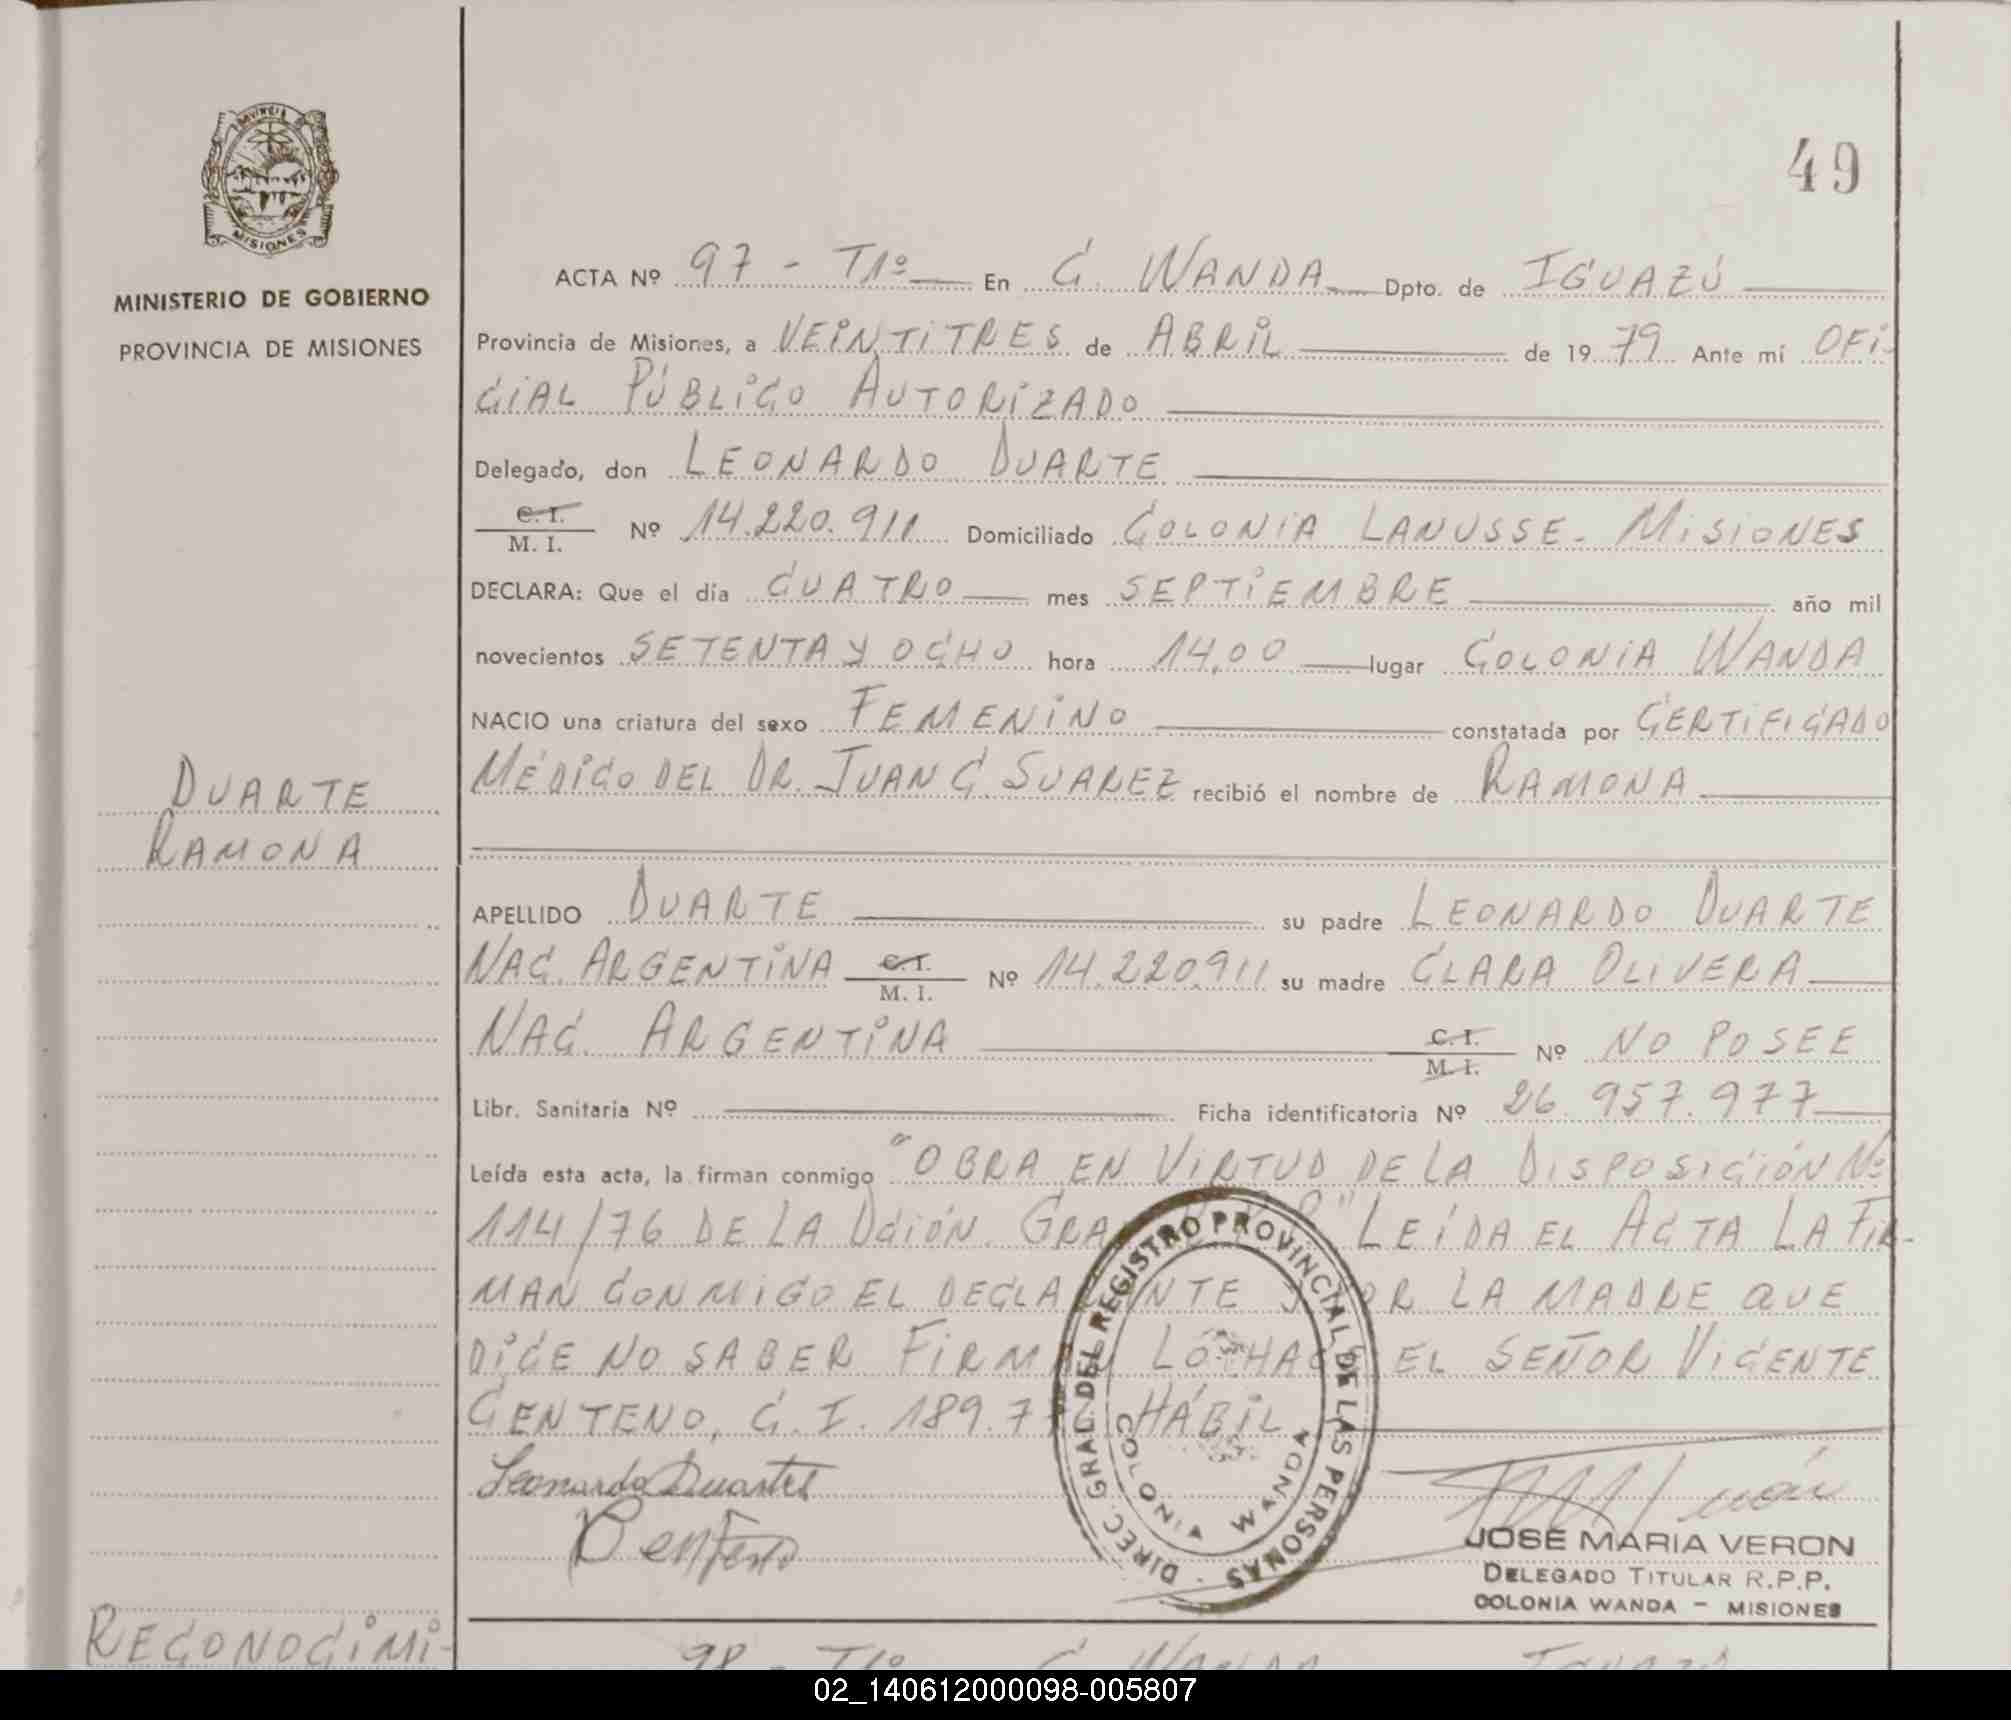 PROVINCIA
MISIONES
MINISTERIO DE GOBIERNO
PROVINCIA DE MISIONES
49
ACTA Nº 97 - T1º En C. WANDA Dpto. de IGUAZÚ
Provincia de Misiones, a VEINTITRES de ABRIL de 19 79 Ante mí OFI-
CIAL PÚBLICO AUTORIZADO
Delegado, don LEONARDO DUARTE
C. I.
M. I. Nº 14.220.911 Domiciliado COLONIA LANUSSE - MISIONES
DECLARA: Que el día CUATRO mes SEPTIEMBRE año mil
novecientos SETENTA Y OCHO hora 14,00 lugar COLONIA WANDA
NACIO una criatura del sexo FEMENINO constatada por CERTIFICADO
MÉDICO DEL DR. JUAN C. SUAREZ recibió el nombre de RAMONA
DUARTE
RAMONA
APELLIDO DUARTE su padre LEONARDO DUARTE
NAC. ARGENTINA C. I. M. I. Nº 14.220.911 su madre CLARA OLIVERA
NAC. ARGENTINA C. I. M. I. Nº NO POSEE
Libr. Sanitaria Nº Ficha identificatoria Nº 26.957.977
Leída esta acta, la firman conmigo "OBRA EN VIRTUD DE LA DISPOSICIÓN Nº
114/76 DE LA DCIÓN. GRAL " LEÍDA EL ACTA LA FIR-
MAN CONMIGO EL DECLARANTE Y POR LA MADRE QUE
DICE NO SABER FIRMAR LO HACE EL SEÑOR VICENTE
CENTENO, C. I. 189.7 HÁBIL
Leonardo Duarte
DIREC. GRAL. DEL REGISTRO PROVINCIAL DE LAS PERSONAS -
COLONIA WANDA
JOSE MARIA VERON
DELEGADO TITULAR R.P.P.
COLONIA WANDA - MISIONES
RECONOCIMI-
98 - T1º C. WANDA IGUAZÚ
02_140612000098-005807